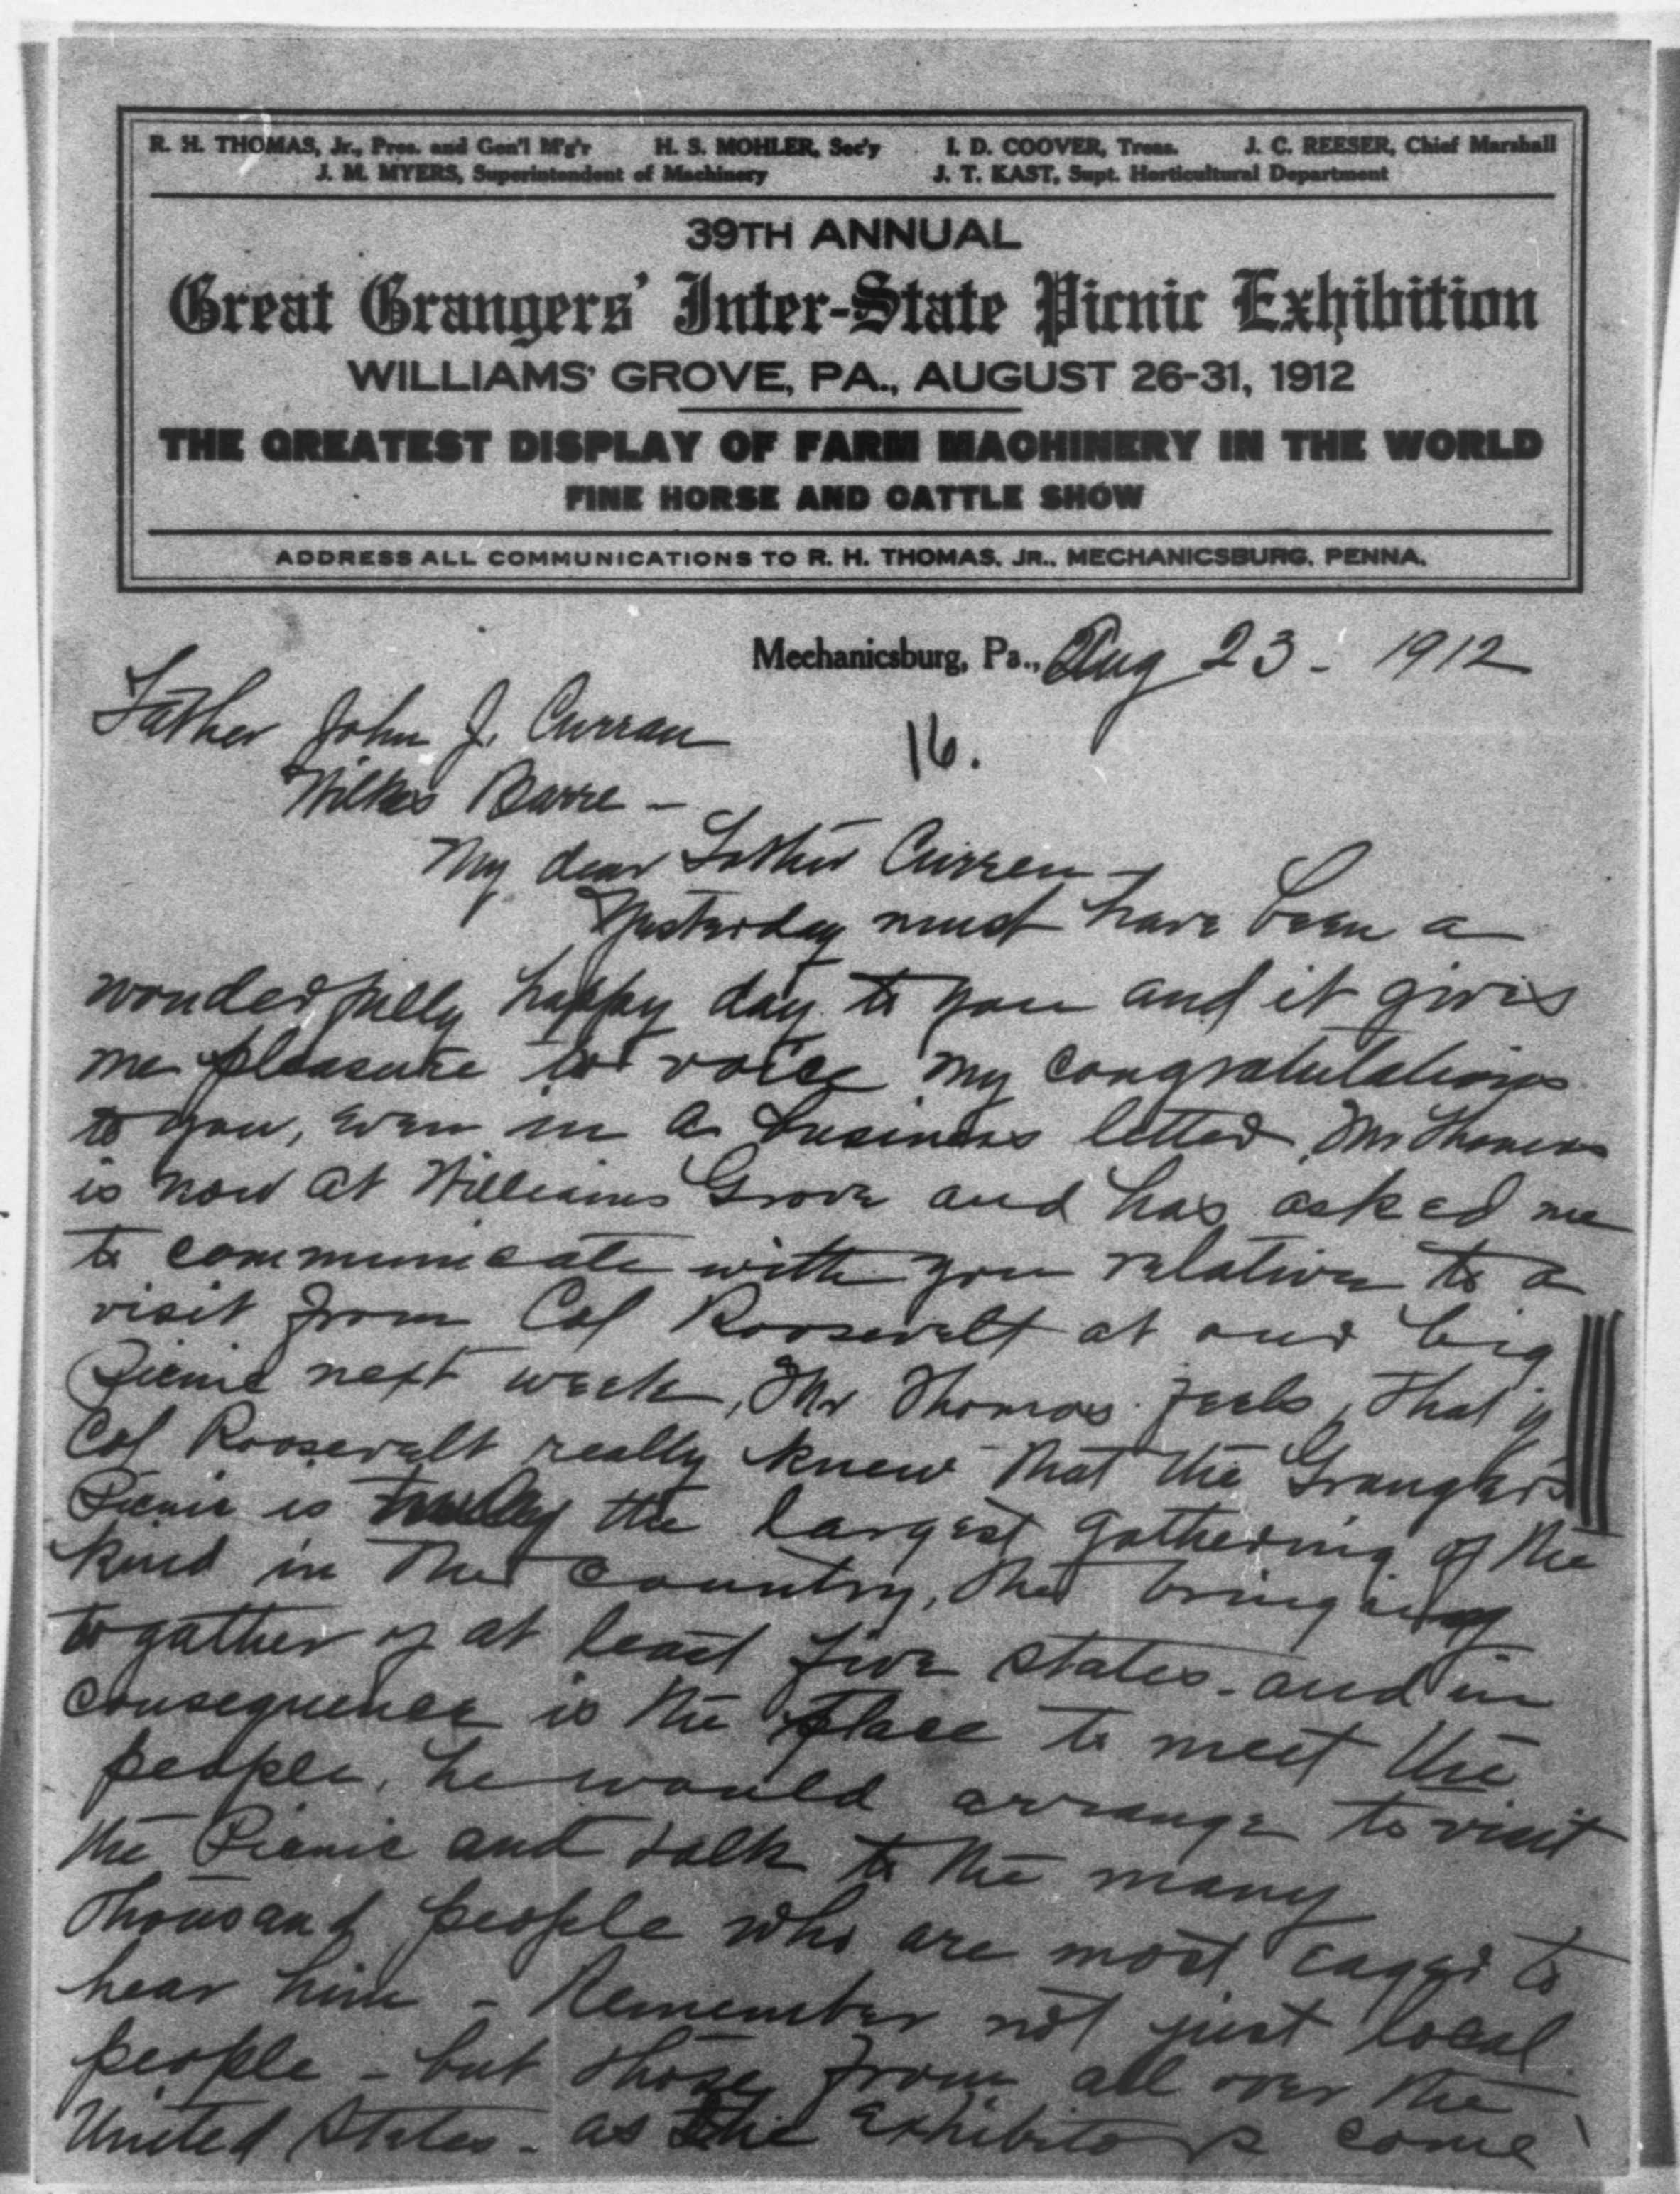 R. H. THOMAS, Jr., Pres. and Gen'l M'g'r H. S. MOHLER, Sec'y I. D. COOVER, Treas. J. C. REESER, Chief Marshall
J. M. MYERS, Superintendent of Machinery J. T. KAST, Supt. Horticultural Department
39TH ANNUAL
Great Grangers' Inter-State Picnic Exhibition
WILLIAMS' GROVE, PA., AUGUST 26-31, 1912
THE GREATEST DISPLAY OF FARM MACHINERY IN THE WORLD
FINE HORSE AND CATTLE SHOW
ADDRESS ALL COMMUNICATIONS TO R. H. THOMAS, JR., MECHANICSBURG, PENNA.
Mechanicsburg, Pa., Aug 23 - 1912
Father John J. Curran
16.
Wilkes Barre -
My dear Father Curren -
Yesterday must have been a
wonderfully happy day to you and it gives
me pleasure to voice my congratulations
to you, even in a business letter. Mr Thomas
is now at Williams Grove and has asked me
to communicate with you relative to a
visit from Col Roosevelt at our big
Picnic next week, Mr Thomas feels, that if
Col Roosevelt really knew that the Granger's
Picnic is truly the largest gathering of the
kind in the country, the bringing
togather of at least five states - and in
consequence is the place to meet the
people, he would arrange to visit
the Picnic and talk to the many
thousand people who are most eager to
hear him - Remember not just local
people - but those from all over the
United States - as the exhibitors come